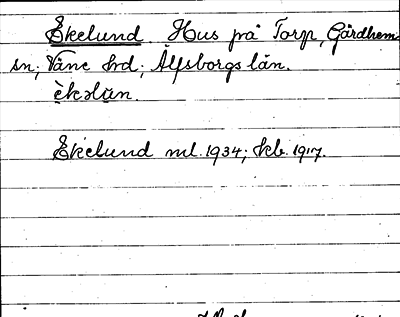 Ekelund Hus på Torp, Gärdhem
sn; Väne hrd; Älfsborgs län.
Ekelund ml. 1934; kb. 1917.